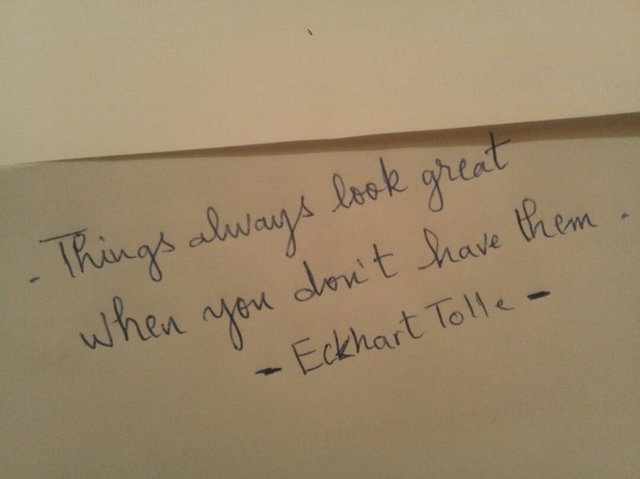 - Things always look great
when you don't have them.
- Eckhart Tolle -